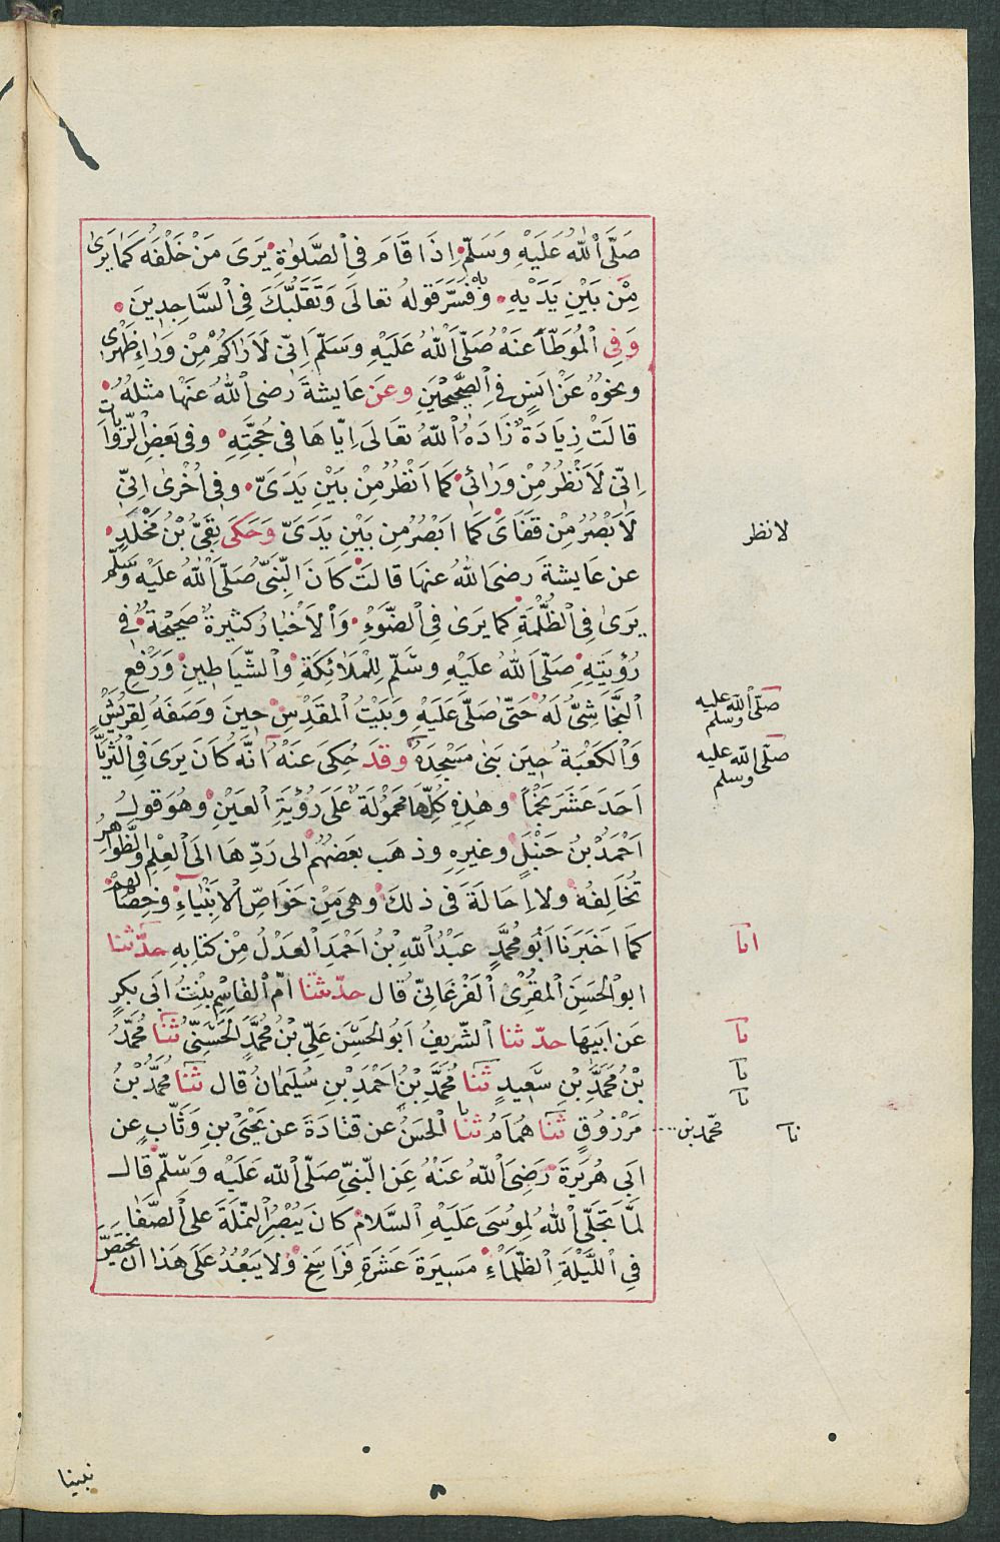 صَلَّى اللهُ عَلَيْهِ وَسَلَّمَ اِذَا قَامَ فِي الصَّلٰوةِ يَرَى مَنْ خَلْفَهُ كَمَا يَرَى
مَنْ بَيْنَ يَدَيْهِ وَبِهِ فُسِّرَ قَوْلُهُ تَعَالَى وَتَقَلُّبَكَ فِي السَّاجِدِينَ
وَفِي الْمُوَطَّأ عَنْهُ صَلَّى اللهُ عَلَيْهِ وَسَلَّمَ اِنِّي لَاَرَاكُمْ مِنْ وَرَاءِ ظَهْرِي
وَنَحْوُهُ عَنْ اَنَسٍ فِي الصَّحِيحَيْنِ وَعَنْ عَايِشَةَ رَضِيَ اللهُ عَنْهَا مِثْلُهُ
قَالَتْ زِيَادَةٌ زَادَهُ اللهُ تَعَالَى اِيَّاهَا فِي حُجَّتِهِ وَفِي بَعْضِ الرِّوَايَاتِ
اِنِّي لَاَنْظُرُ مِنْ وَرَائِي كَمَا اَنْظُرُ مِنْ بَيْنِ يَدَيَّ وَفِي اُخْرٰى اِنِّي
لَاَبْصُرُ مِنْ قَفَايَ كَمَا اَبْصُرُ مِنْ بَيْنِ يَدَيَّ وَحَكَى بَقِيُّ بْنُ مَخْلَدٍ
لانظر
عن عَايِشَةَ رضىَ اللهُ عنهَا قالَتْ كَانَ النَّبِيُّ صَلَّى اللهُ عَلَيْهِ وَسَلَّمَ
يَرٰى فِي الظُّلْمَةِ كَمَا يَرٰى فِي الضَّوْءِ وَالْاَخْبَارُ كَثِيرَةٌ صَحِيحَةٌ فِي
رُؤْيَتِهِ صَلَّى اللهُ عَلَيْهِ وَسَلَّمَ لِلْمَلَائِكَةِ وَالشَّيَاطِينِ وَرَفْعِ
النَّجَاشِيِّ لَهُ حَتّٰى صَلَّى عَلَيْهِ وَبَيْتُ الْمَقْدِسِ حِينَ وَصَفَهُ لِقُرَيْشٍ
صلّى الله عليه وسلم
وَالْكَعْبَةِ حِينَ بَنٰى مَسْجِدَهُ وَقَدْ حُكِيَ عَنْهُ اَنَّهُ كَانَ يَرَى فِي الثُّرَيَّا
صلّى الله عليه وسلم
اَحَدَ عَشَرَ نَجْمًا وَهٰذِهِ كُلُّهَا مَحْمُولَةٌ عَلَى رُؤْيَةِ الْعَيْنِ وَهُوَ قَوْلُ
اَحْمَدَ بْنِ حَنْبَلٍ وَغَيْرِهِ وَذَهَبَ بَعْضُهُمْ اِلَى رَدِّهَا اِلَى الْعِلْمِ وَالظَّوَاهِرُ
تُخَالِفُهُ وَلَا اِحَالَةَ فِي ذٰلِكَ وَهِيَ مِنْ خَوَاصِّ الْاَنْبِيَاءِ وَخِصَالِهِمْ
كَمَا اَخْبَرَنَا اَبُو مُحَمَّدٍ عَبْدُ اللهِ بْنُ اَحْمَدَ الْعَدْلُ مِنْ كِتَابِهِ حدّثنا
انا
ابو الْحَسَنِ الْمُقْرِئُ الْفَرْغَانِيُّ قَالَ حدّثتنا اُمُّ الْقَاسِمِ بِنْتُ اَبِي بَكْرٍ
عَنْ اَبِيهَا حدّثنا الشَّرِيفُ اَبُو الْحَسَنِ عَلِيُّ بْنُ مُحَمَّدٍ الْحَسَنِيُّ ثنا مُحَمَّدُ
نا
بْنُ مُحَمَّدِ بْنِ سَعِيدٍ ثنا مُحَمَّدُ بْنُ اَحْمَدَ بْنِ سُلَيْمَانَ قَالَ ثنا مُحَمَّدُ بْنُ
نا
نا
مَرْزُوقٍ ثنا هَمَّامٌ ثنا الْحَسَنُ عن قتادَةَ عن يَحْيَى بْنِ وَثَّابٍ عن
محمّد بن
نا
اَبِي هُرَيْرَةَ رَضِيَ اللهُ عَنْهُ عَنِ النَّبِيِّ صَلَّى اللهُ عَلَيْهِ وَسَلَّمَ قَالَ
لَمَّا تَجَلَّى اللهُ لِمُوسَى عَلَيْهِ السَّلَامُ كَانَ يُبْصِرُ النَّمْلَةَ عَلَى الصَّفَا
فِي اللَّيْلَةِ الظَّلْمَاءِ مَسِيرَةَ عَشَرَةِ فَرَاسِخَ وَلَا يَبْعُدُ عَلَى هَذَا اَنْ يَخْتَصَّ
نبينا